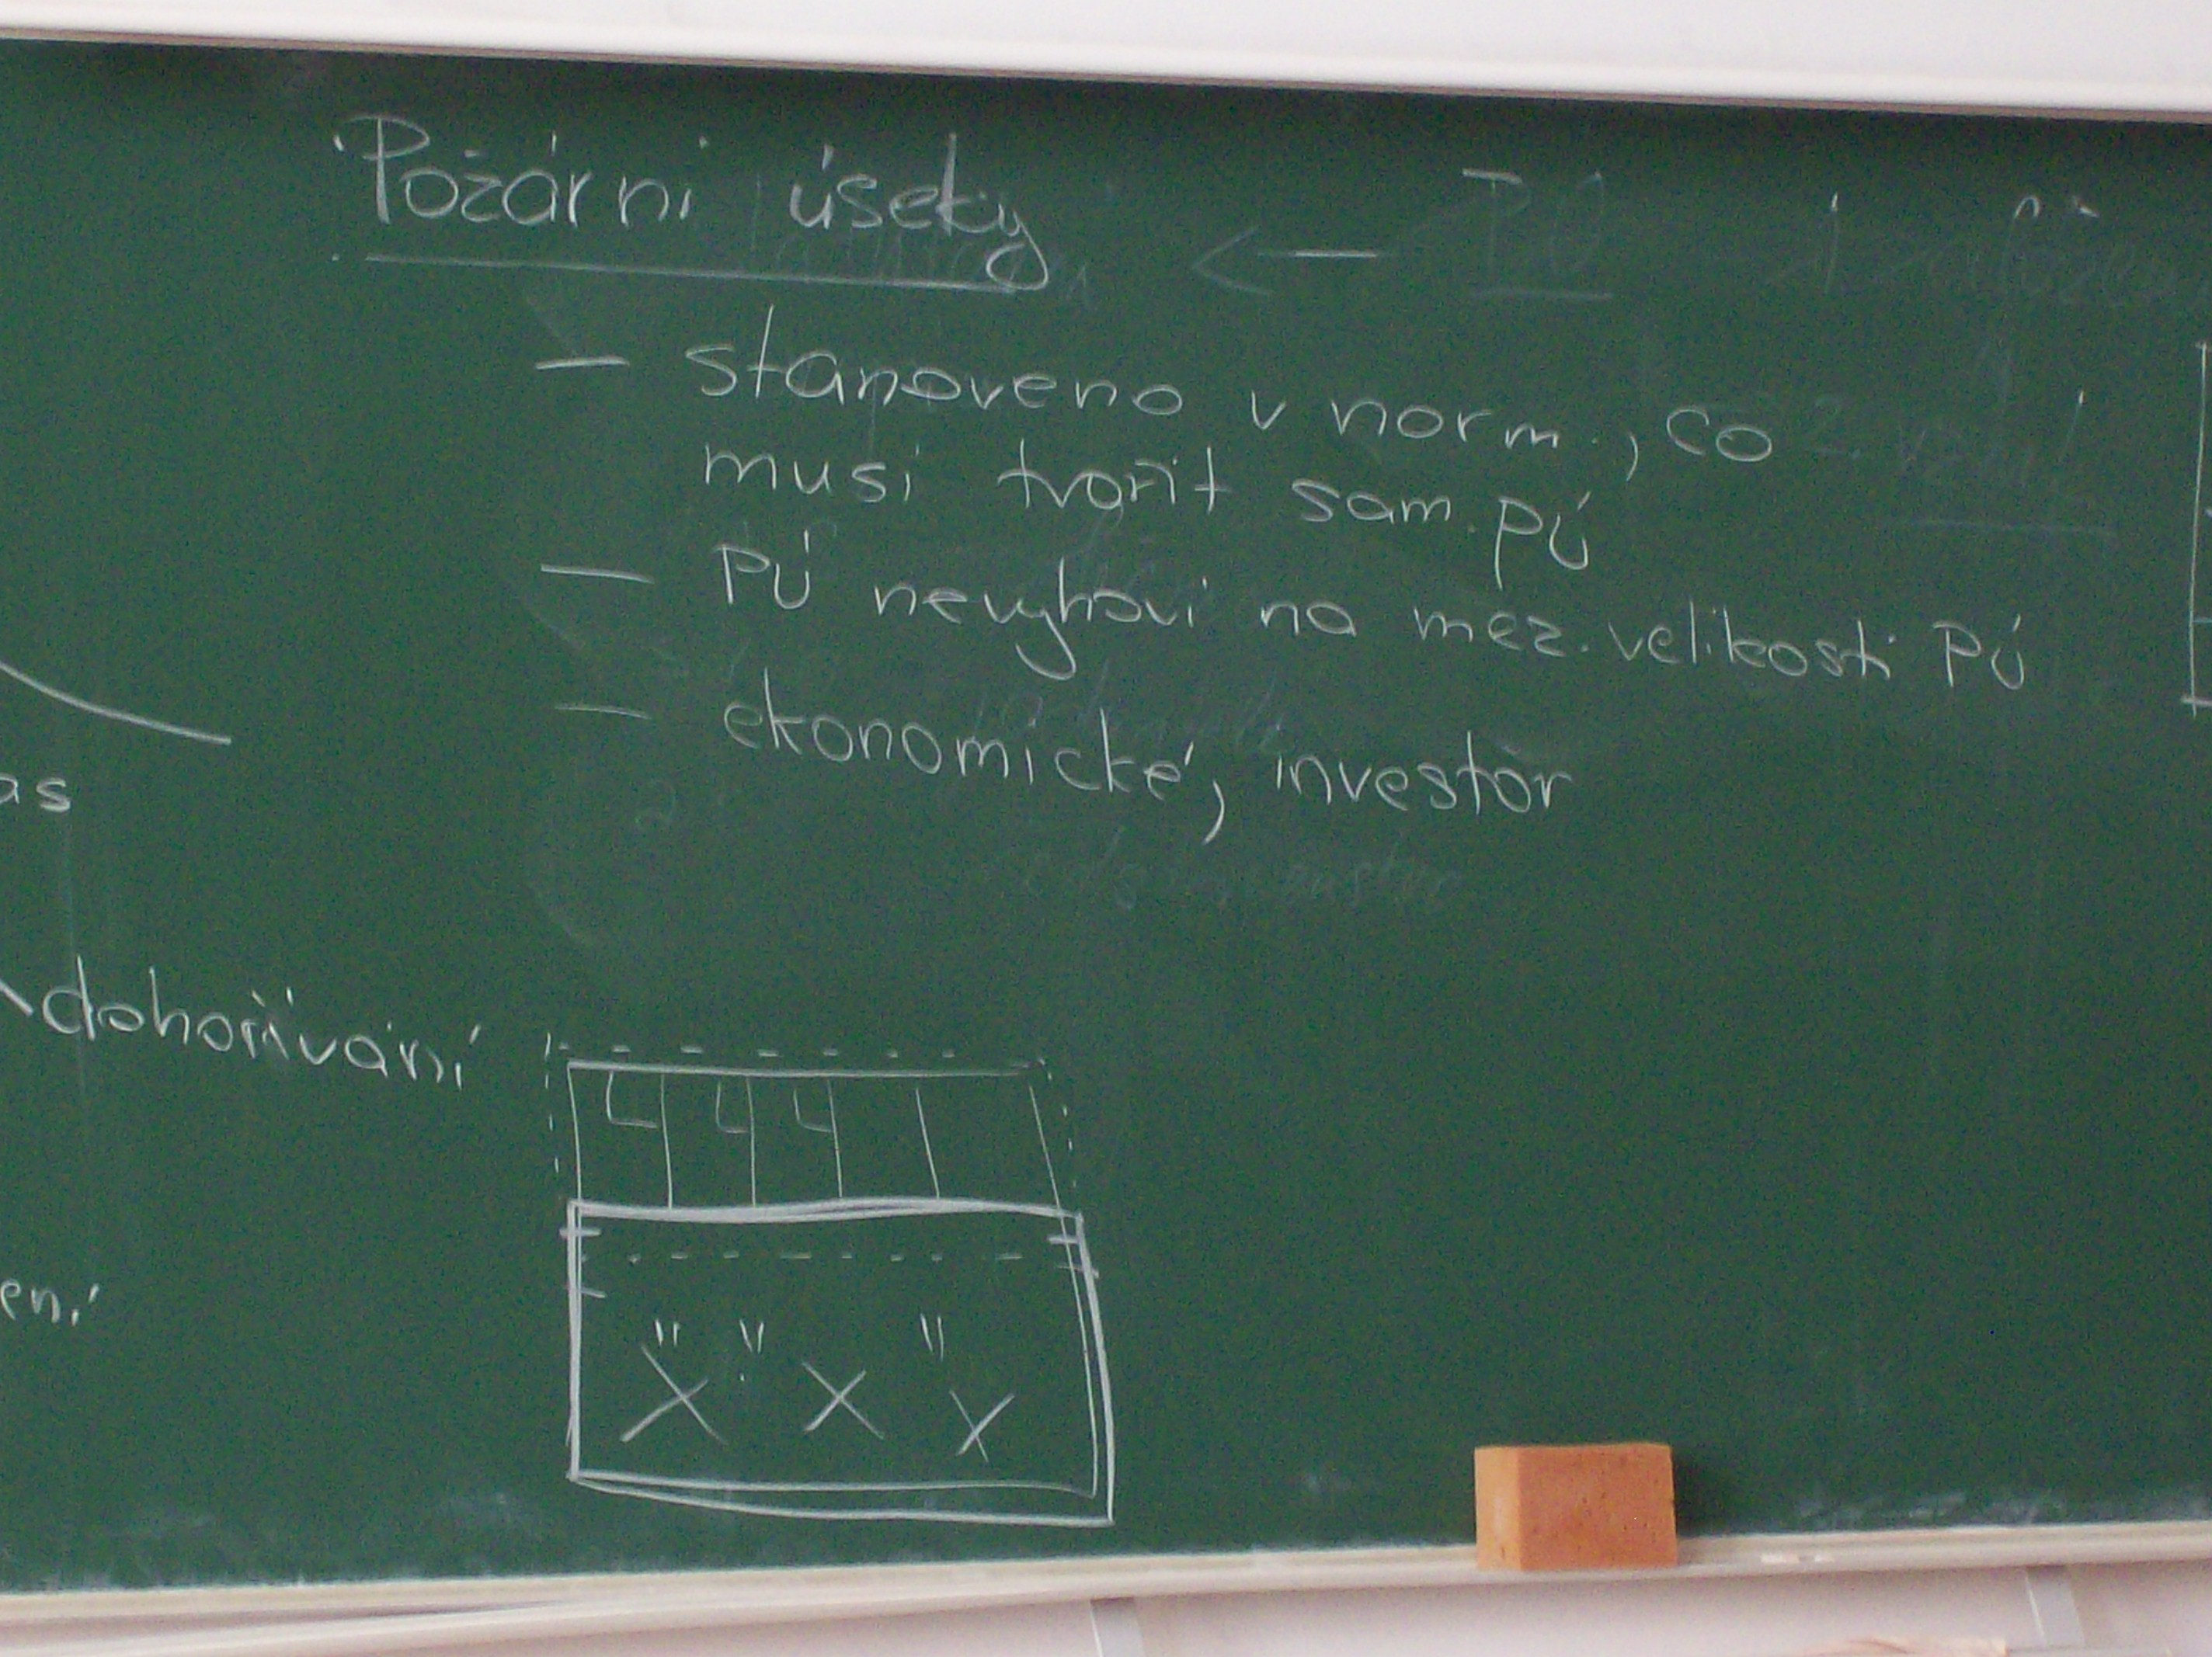 Požární úseky
— stanoveno v norm., co
musí tvořit sam. pú
— PÚ nevyhoví na mez. velikosti PÚ
— ekonomické, investor
dohořívání
X X X